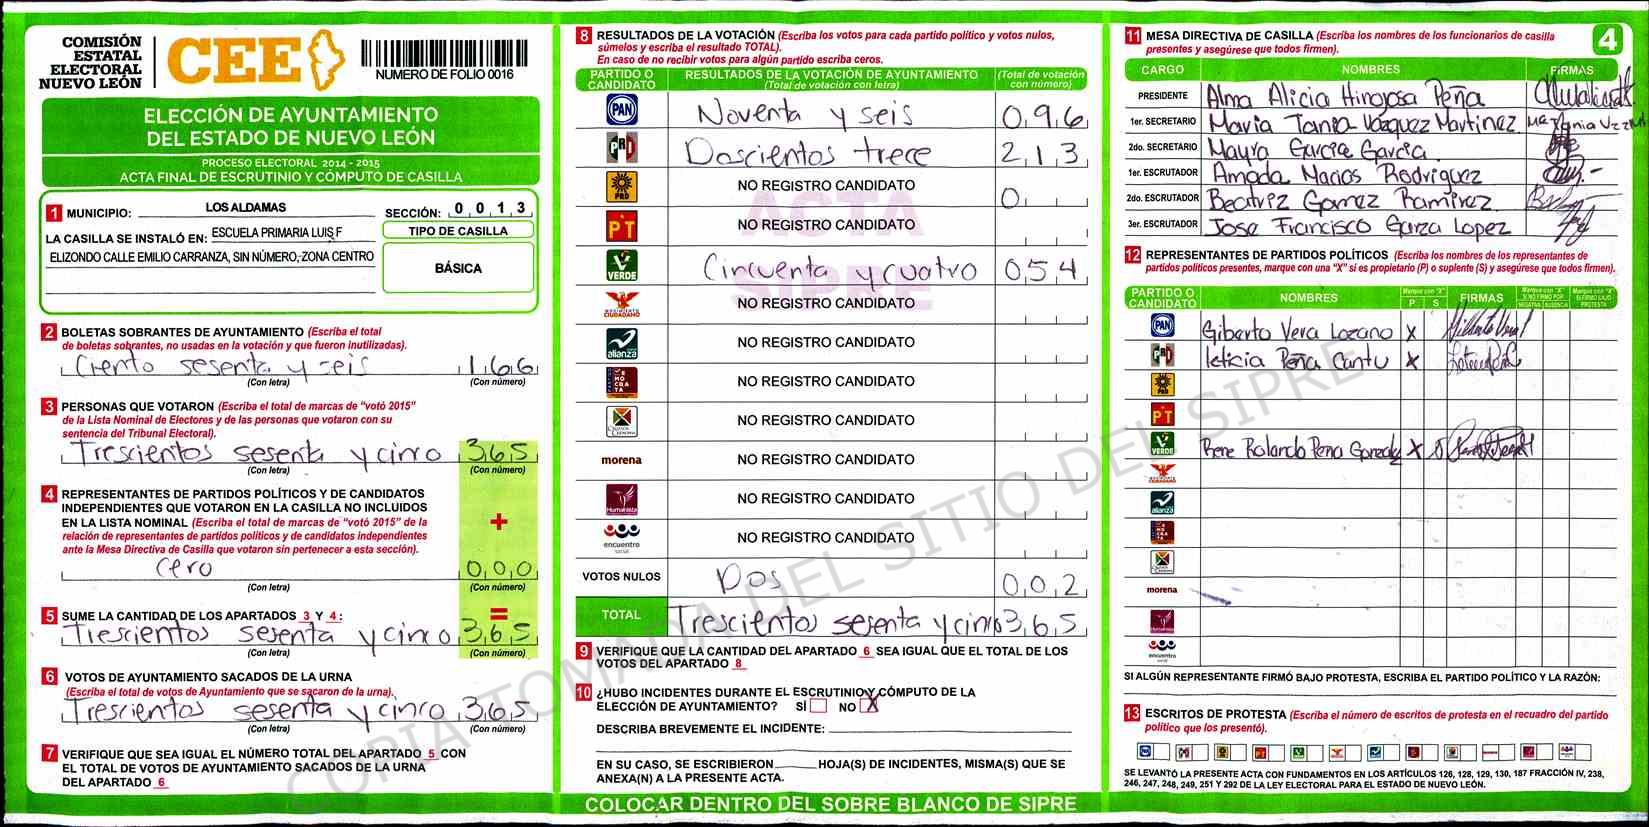 COMISIÓN
ESTATAL
ELECTORAL
NUEVO LEÓN
CEE
NUMERO DE FOLIO 0016
ELECCIÓN DE AYUNTAMIENTO
DEL ESTADO DE NUEVO LEÓN
PROCESO ELECTORAL 2014 - 2015
ACTA FINAL DE ESCRUTINIO Y CÓMPUTO DE CASILLA
1 MUNICIPIO: LOS ALDAMAS SECCIÓN: 0 0 1 3
LA CASILLA SE INSTALÓ EN: ESCUELA PRIMARIA LUIS F
ELIZONDO CALLE EMILIO CARRANZA, SIN NÚMERO, ZONA CENTRO
TIPO DE CASILLA
BÁSICA
2 BOLETAS SOBRANTES DE AYUNTAMIENTO (Escriba el total
de boletas sobrantes, no usadas en la votación y que fueron inutilizadas).
Ciento sesenta y seis 166
(Con letra) (Con número)
3 PERSONAS QUE VOTARON (Escriba el total de marcas de "votó 2015"
de la Lista Nominal de Electores y de las personas que votaron con su
sentencia del Tribunal Electoral).
Trescientos sesenta y cinco 365
(Con letra) (Con número)
4 REPRESENTANTES DE PARTIDOS POLÍTICOS Y DE CANDIDATOS
INDEPENDIENTES QUE VOTARON EN LA CASILLA NO INCLUIDOS
EN LA LISTA NOMINAL (Escriba el total de marcas de "votó 2015" de la
relación de representantes de partidos políticos y de candidatos independientes
ante la Mesa Directiva de Casilla que votaron sin pertenecer a esta sección).
+
Cero 000
(Con letra) (Con número)
5 SUME LA CANTIDAD DE LOS APARTADOS 3 Y 4: =
Trescientos sesenta y cinco 365
(Con letra) (Con número)
6 VOTOS DE AYUNTAMIENTO SACADOS DE LA URNA
(Escriba el total de votos de Ayuntamiento que se sacaron de la urna).
Trescientos sesenta y cinco 365
(Con letra) (Con número)
7 VERIFIQUE QUE SEA IGUAL EL NÚMERO TOTAL DEL APARTADO 5 CON
EL TOTAL DE VOTOS DE AYUNTAMIENTO SACADOS DE LA URNA
DEL APARTADO 6
8 RESULTADOS DE LA VOTACIÓN (Escriba los votos para cada partido político y votos nulos,
súmelos y escriba el resultado TOTAL).
En caso de no recibir votos para algún partido escriba ceros.
PARTIDO O CANDIDATO RESULTADOS DE LA VOTACIÓN DE AYUNTAMIENTO (Total de votación con letra) (Total de votación con número)
PAN Noventa y seis 096
PRI Doscientos trece 213
PRD NO REGISTRO CANDIDATO 0
PT NO REGISTRO CANDIDATO
VERDE Cincuenta y cuatro 054
MOVIMIENTO CIUDADANO NO REGISTRO CANDIDATO
alianza NO REGISTRO CANDIDATO
DEMOCRATA NO REGISTRO CANDIDATO
CRUZADA CIUDADANA NO REGISTRO CANDIDATO
morena NO REGISTRO CANDIDATO
Humanista NO REGISTRO CANDIDATO
encuentro social NO REGISTRO CANDIDATO
ACTA
SIPRE
VOTOS NULOS Dos 002
TOTAL Trescientos sesenta y cinco 365
9 VERIFIQUE QUE LA CANTIDAD DEL APARTADO 6 SEA IGUAL QUE EL TOTAL DE LOS
VOTOS DEL APARTADO 8
10 ¿HUBO INCIDENTES DURANTE EL ESCRUTINIO Y CÓMPUTO DE LA
ELECCIÓN DE AYUNTAMIENTO? SÍ NO X
DESCRIBA BREVEMENTE EL INCIDENTE:
EN SU CASO, SE ESCRIBIERON HOJA(S) DE INCIDENTES, MISMA(S) QUE SE
ANEXA(N) A LA PRESENTE ACTA.
COLOCAR DENTRO DEL SOBRE BLANCO DE SIPRE
4
11 MESA DIRECTIVA DE CASILLA (Escriba los nombres de los funcionarios de casilla
presentes y asegúrese que todos firmen).
CARGO NOMBRES FIRMAS
PRESIDENTE Alma Alicia Hinojosa Peña
1er. SECRETARIO Maria Tania Vazquez Martinez
2do. SECRETARIO Mayra Garcia Garcia
1er. ESCRUTADOR Amada Macias Rodriguez
2do. ESCRUTADOR Beatriz Gomez Ramirez
3er. ESCRUTADOR Jose Francisco Garza Lopez
12 REPRESENTANTES DE PARTIDOS POLÍTICOS (Escriba los nombres de los representantes de
partidos políticos presentes, marque con una "X" si es propietario (P) o suplente (S) y asegúrese que todos firmen).
PARTIDO O CANDIDATO NOMBRES Marque con "X" P S FIRMAS Marque con "X" SI NO FIRMÓ POR NEGATIVA AUSENCIA Marque con "X" SI FIRMÓ BAJO PROTESTA
PAN Giberto Vera Lozano X
PRI leticia Peña Cantu X
PRD
PT
VERDE Rene Rolando Pena Gonzalez X
MOVIMIENTO CIUDADANO
alianza
morena
encuentro social
SI ALGÚN REPRESENTANTE FIRMÓ BAJO PROTESTA, ESCRIBA EL PARTIDO POLÍTICO Y LA RAZÓN:
13 ESCRITOS DE PROTESTA (Escriba el número de escritos de protesta en el recuadro del partido
político que los presentó).
SE LEVANTÓ LA PRESENTE ACTA CON FUNDAMENTOS EN LOS ARTÍCULOS 126, 128, 129, 130, 187 FRACCIÓN IV, 238,
246, 247, 248, 249, 251 Y 292 DE LA LEY ELECTORAL PARA EL ESTADO DE NUEVO LEÓN.
COPIA TOMADA DEL SITIO DEL SIPRE